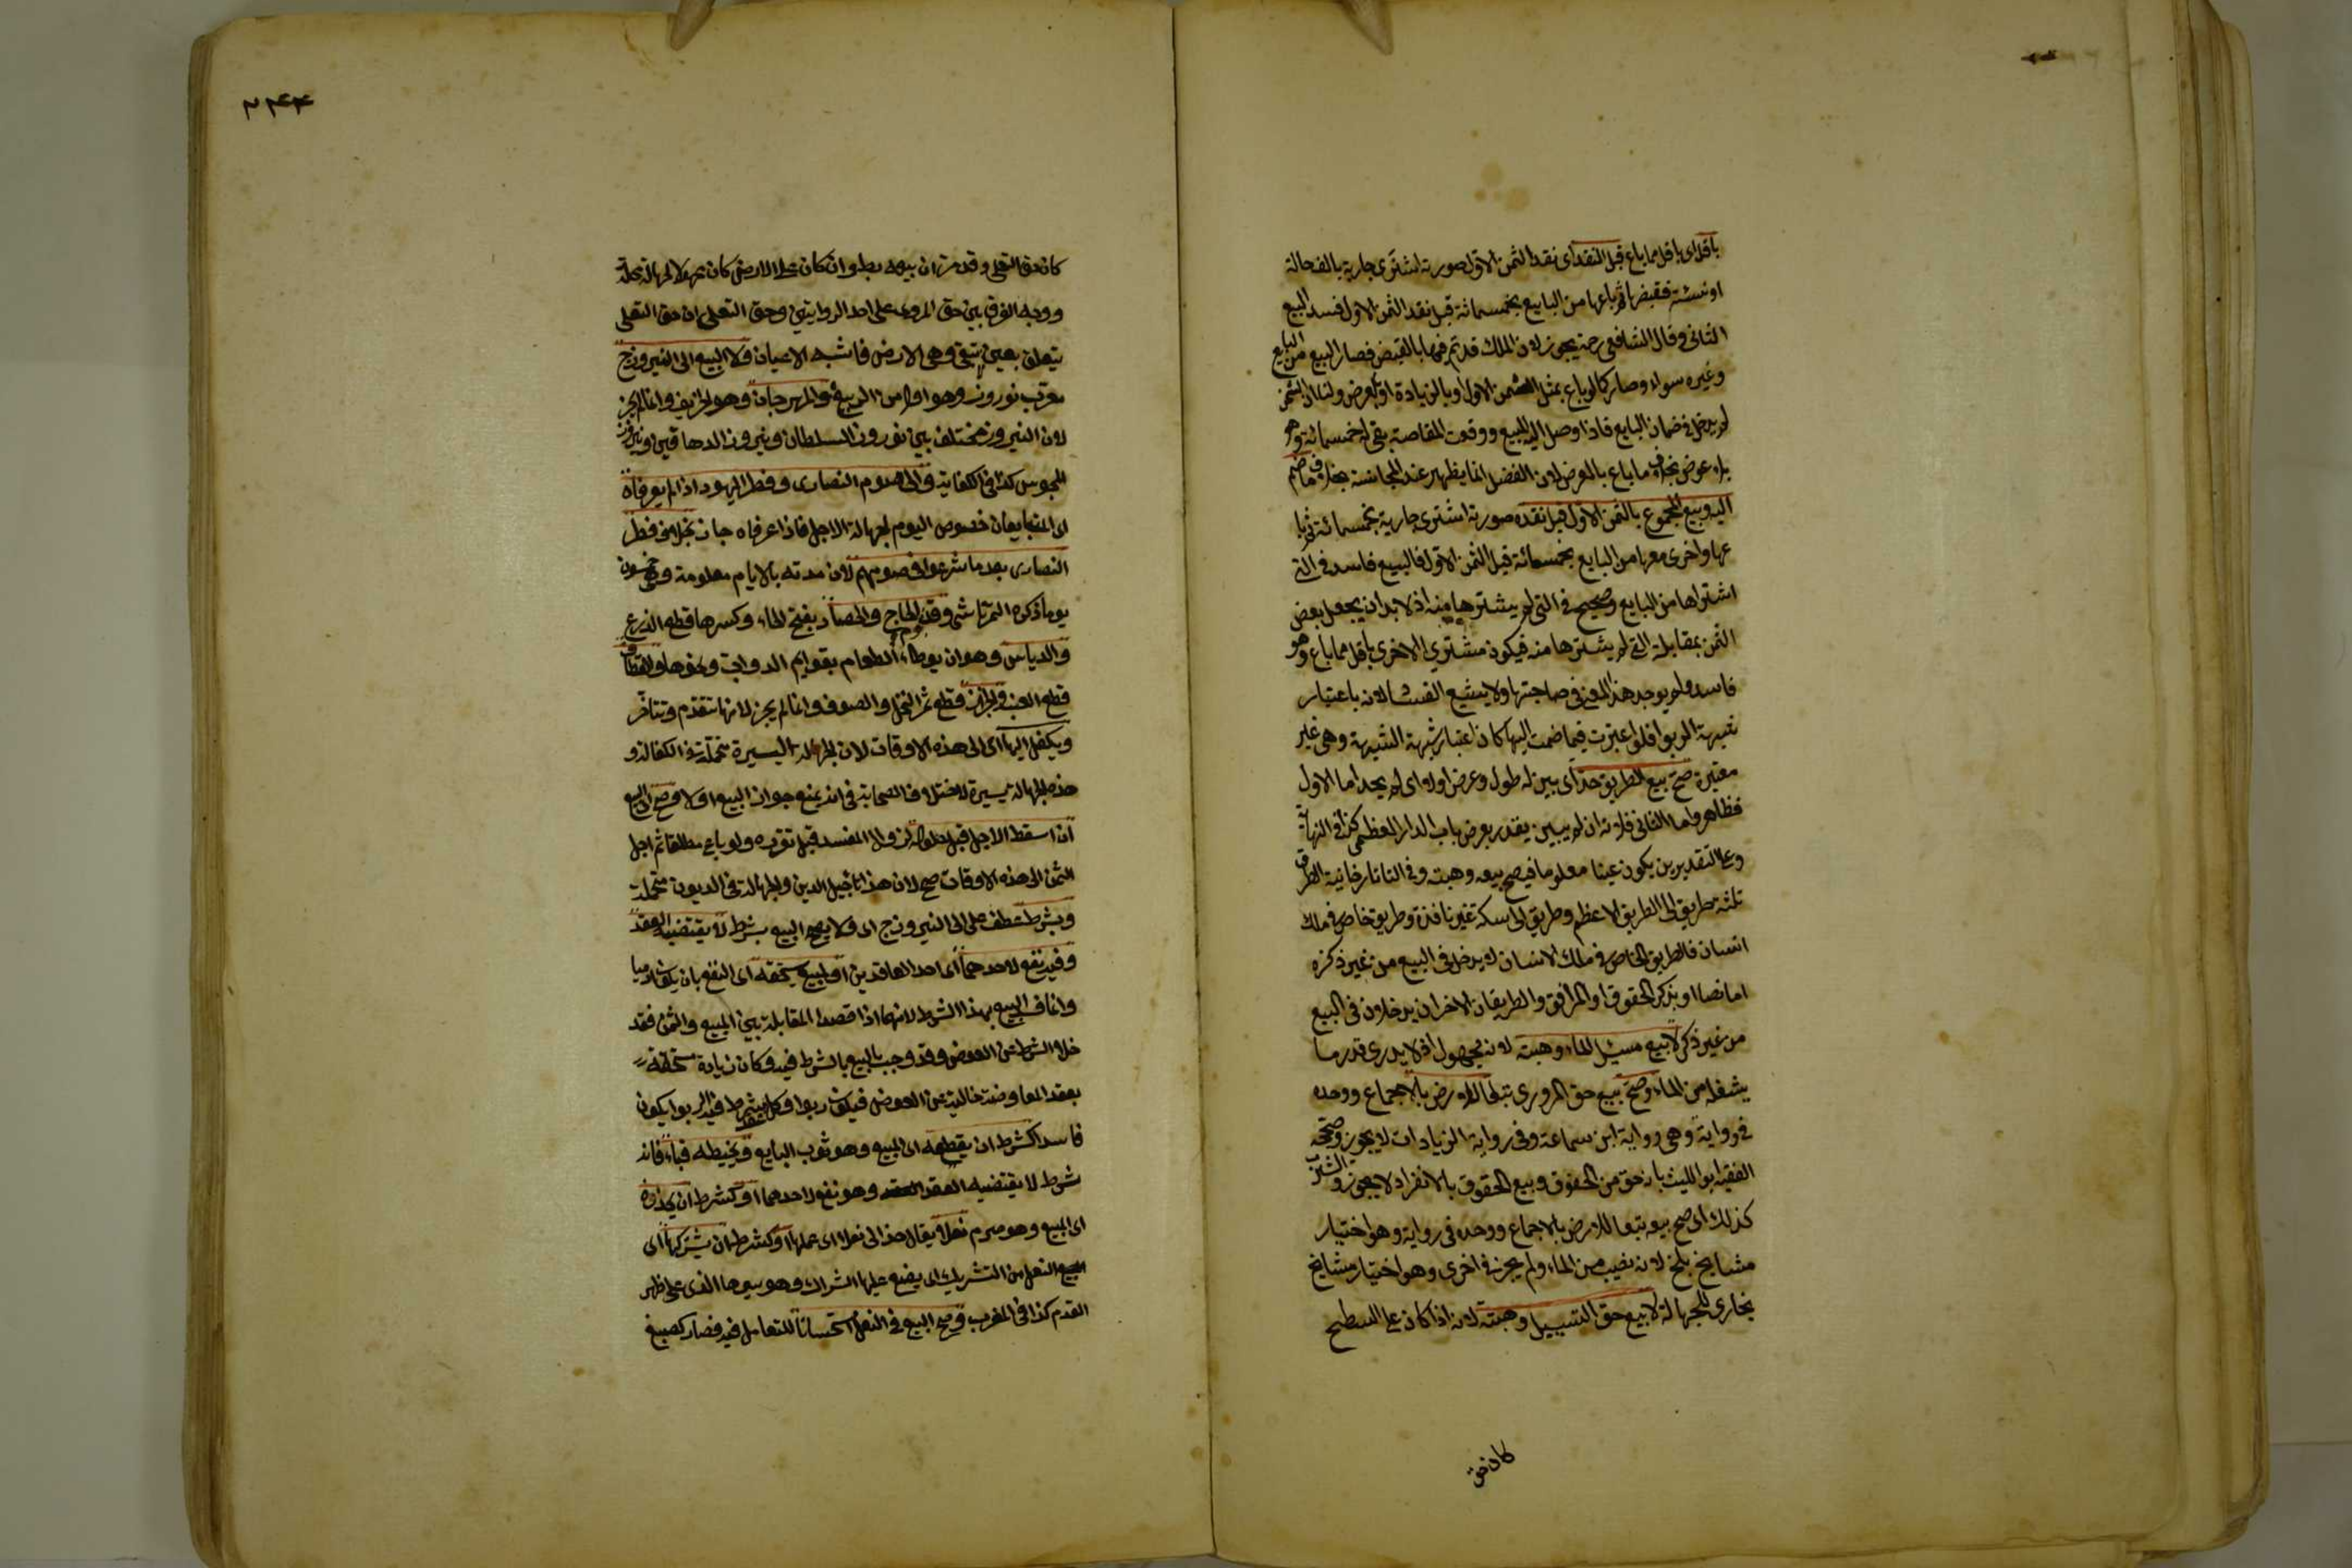 باقل اى باقل مما باع قبل النقد اى نقد الثمن الاول صورته اشترى جارية بالف حالة
او نسئة فقبضها ثم باعها من البايع بخمسمائة قبل نقد الثمن الاول فسد البيع
الثانى وقال الشافعى رحمه يجوز لان الملك قد تم فيها بالقبض فصار البيع من البايع
وغيره سواء وصار كما لو باع بمثل الثمن الاول او بالزيادة او بالعرض ولنا ان الثمن
لم يدخل فى ضمان البايع فاذا وصل اليه المبيع ووقعت المقاصة بقى له خمسمائة وهو
بلا عوض بخلاف ما باع بالعرض لان الفضل انما يظهر عند المجانسة بخلاف ما ضم
اليه وبيع المجموع بالثمن الاول قبل نقده صورته اشترى جارية بخمسمائة ثم با
عها واخرى معها من البايع بخمسمائة قبل الثمن الاول فالبيع فاسد فى التى
اشتراها من البايع وصحيح فى التى لم يشترها منه اذ لا بد ان يجعل بعض
الثمن بمقابلة التى لم يشترها منه فيكون مشترى الاخرى باقل مما باع وهو
فاسد ولم يوجد هذا المعنى فى صاحبتها ولا يشيع الفساد لانه باعتبار
شبهة الربوا فلو اعتبرت فيما ضمت اليها كان اعتبار شبهة الشبهة وهى غير
معتبرة صح بيع الطريق حد اى بين له طول وعرض او لا اى لم يحد اما الاول
فظاهر واما الثانى فلانه ان لم يبين يقدر بعرض باب الدار العظمى كذا فى النهاية
وعلى التقديرين يكون عينا معلوما فيصح بيعه وهبته وفى التاتارخانية الطرق
ثلثة طريق الى الطريق الاعظم وطريق الى سكة غير نافذة وطريق خاص فى ملك
انسان فالطريق الخاص فى ملك الانسان لا يدخل فى البيع من غير ذكره
اما نصا او بذكر الحقوق او المرافق والطريقان الاخران يدخلان فى البيع
من غير ذكر لا بيع مسيل الماء وهبته لانه مجهول اذ لا يدرى قدر ما
يشغله من الماء وصح بيع حق المرور تبعا للارض بالاجماع ووحده
فى رواية وهى رواية ابن سماعة وفى رواية الزيادات لا يجوز وصححه
الفقيه ابو الليث بانه حق من الحقوق وبيع الحقوق بالانفراد لا يجوز والشرب
كذلك اى صح بيعه تبعا للارض بالاجماع ووحده فى رواية وهو اختيار
مشايخ بلخ لانه نصيب من الماء ولم يجز فى اخرى وهو اختيار مشايخ
بخارى للجهالة لا بيع حق التسييل وهبته لانه اذا كان على السطح
كان حق
٢٤٤
كان حق التعلى وقد مر ان بيعه بطل وان كان على الارض كان مجهولا لجهالة محله
ووجه الفرق بين حق المرور على احد الروايتين وحق التعلى ان حق التعلى
يتعلق بعين لا تبقى وهى الارض فاشبه الاعيان ولا البيع الى النيروز ج
معرب نوروز وهو اول يوم من الربيع والمهرجان وهو الخريف وانما لم يجز
لان النيروز مختلف بين نوروز السلطان ونيروز الدهاقين ونيروز
المجوس كذا فى الكفاية والى صوم النصارى وفطر اليهود اذا لم يعرفاه
اى المتبايعان خصوص اليوم لجهالة الاجل فاذا عرفاه جاز بخلاف فطر
النصارى بعد ما شرعوا فى صومهم لان مدته بالايام معلومة وهى خمسون
يوما ذكره التمرتاشى وقدوم الحاج والحصاد بفتح الحاء وكسرها قطع الزرع
والدياس وهو ان يوطاء الطعام بقوايم الدواب ونحوها والقطاف
قطع العنب والجزاز قطع ثمر النخل والصوف وانما لم يجز لانها تتقدم وتتأخر
ويكفل اليها اى الى هذه الاوقات لان الجهالة اليسيرة متحملة فى الكفالة و
هذه الجهالة يسيرة لاختلاف الصحابة فى انه يمنع جواز البيع او لا وصح البيع
ان اسقط الاجل قبل حلوله لزوال المفسد قبل تقرره ولو باع مطلقا ثم اجل
الثمن الى هذه الاوقات صح لان هذا تاجيل الدين والجهالة فى الديون متحملة
وبشرط عطف على الى النيروز اى ولا يصح البيع بشرط لا يقتضيه العقد
وفيه نفع لاحدهما اى احد العاقدين او لمبيع يستحقه اى النفع بان يكون آدميا
وانما فسد البيع بهذا الشرط لانهما اذا قصدا المقابلة بين المبيع والثمن فقد
خلا الشرط عن العوض وقد وجب بالبيع بالشرط فيه فكان زيادة مستحقة
بعقد المعاوضة خالية عن العوض فيكون ربوا وكل عقد شرط فيه الربوا يكون
فاسدا كشرط ان يقطعه اى المبيع وهو ثوب البايع ويخيطه قباء فانه
شرط لا يقتضيه العقد وهو نفع لاحدهما او كشرط ان يحذوه
اى المبيع وهو صرم نعلا يقال حذا لى نعلا اى عملها او كشرط ان يشركها اى
النعل من التشريك اى يضع عليها الشراك وهو سيرها الذى على ظهر
القدم كذا فى المغرب وصح البيع فى النعل استحسانا للتعامل فيه فصار كصبغ